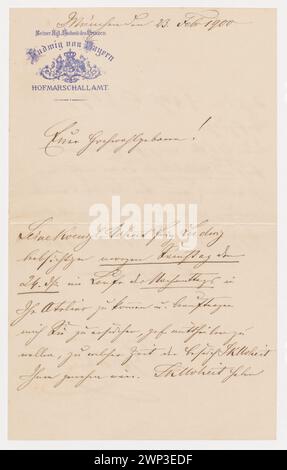 München den 23. Feb. 1900
Seiner Kgl. Hoheit des Prinzen
Ludwig von Bayern
HOFMARSCHALLAMT.
Euer Hochwohlgeboren!
Seine Königl. Hoheit Prinz Ludwig
beabsichtigen morgen Samstag den
24. ds. im Laufe des Nachmittags in
Ihr Atelier zu kommen u. beauftragen
mich Sie zu ersuchen, gef. mittheilen zu
wollen, zu welcher Zeit der Besuch
Ihnen genehm wäre.
alamy
2WP3EDF